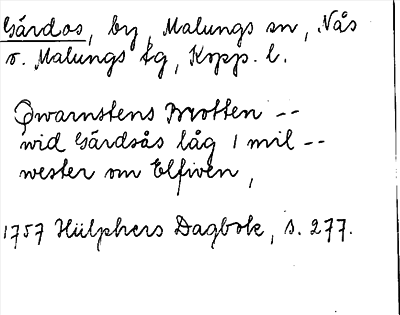 Gärdos, by, Malungs sn, Nås
o. Malungs tg, Kopp. l.
Qwarnstens Brotten --
wid Gärdsås låg 1 mil --
wester om Elfiven,
1757 Hülphers Dagbok, s. 277.